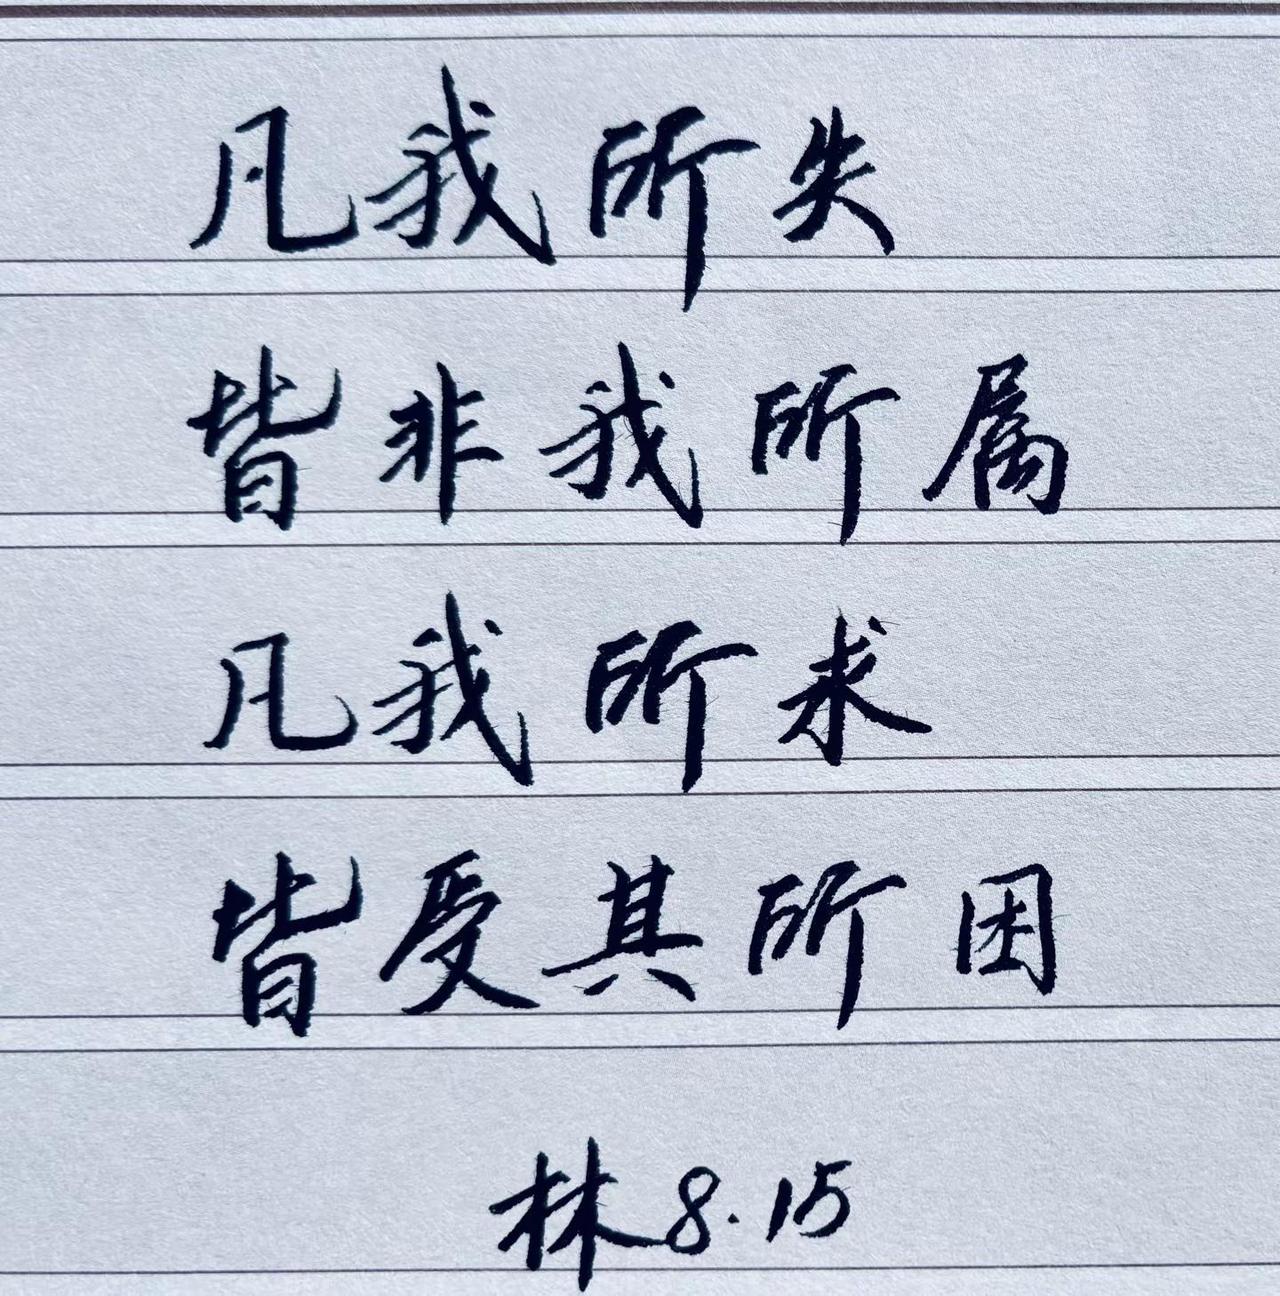 凡我所失
皆非我所属
凡我所求
皆受其所困
林8.15